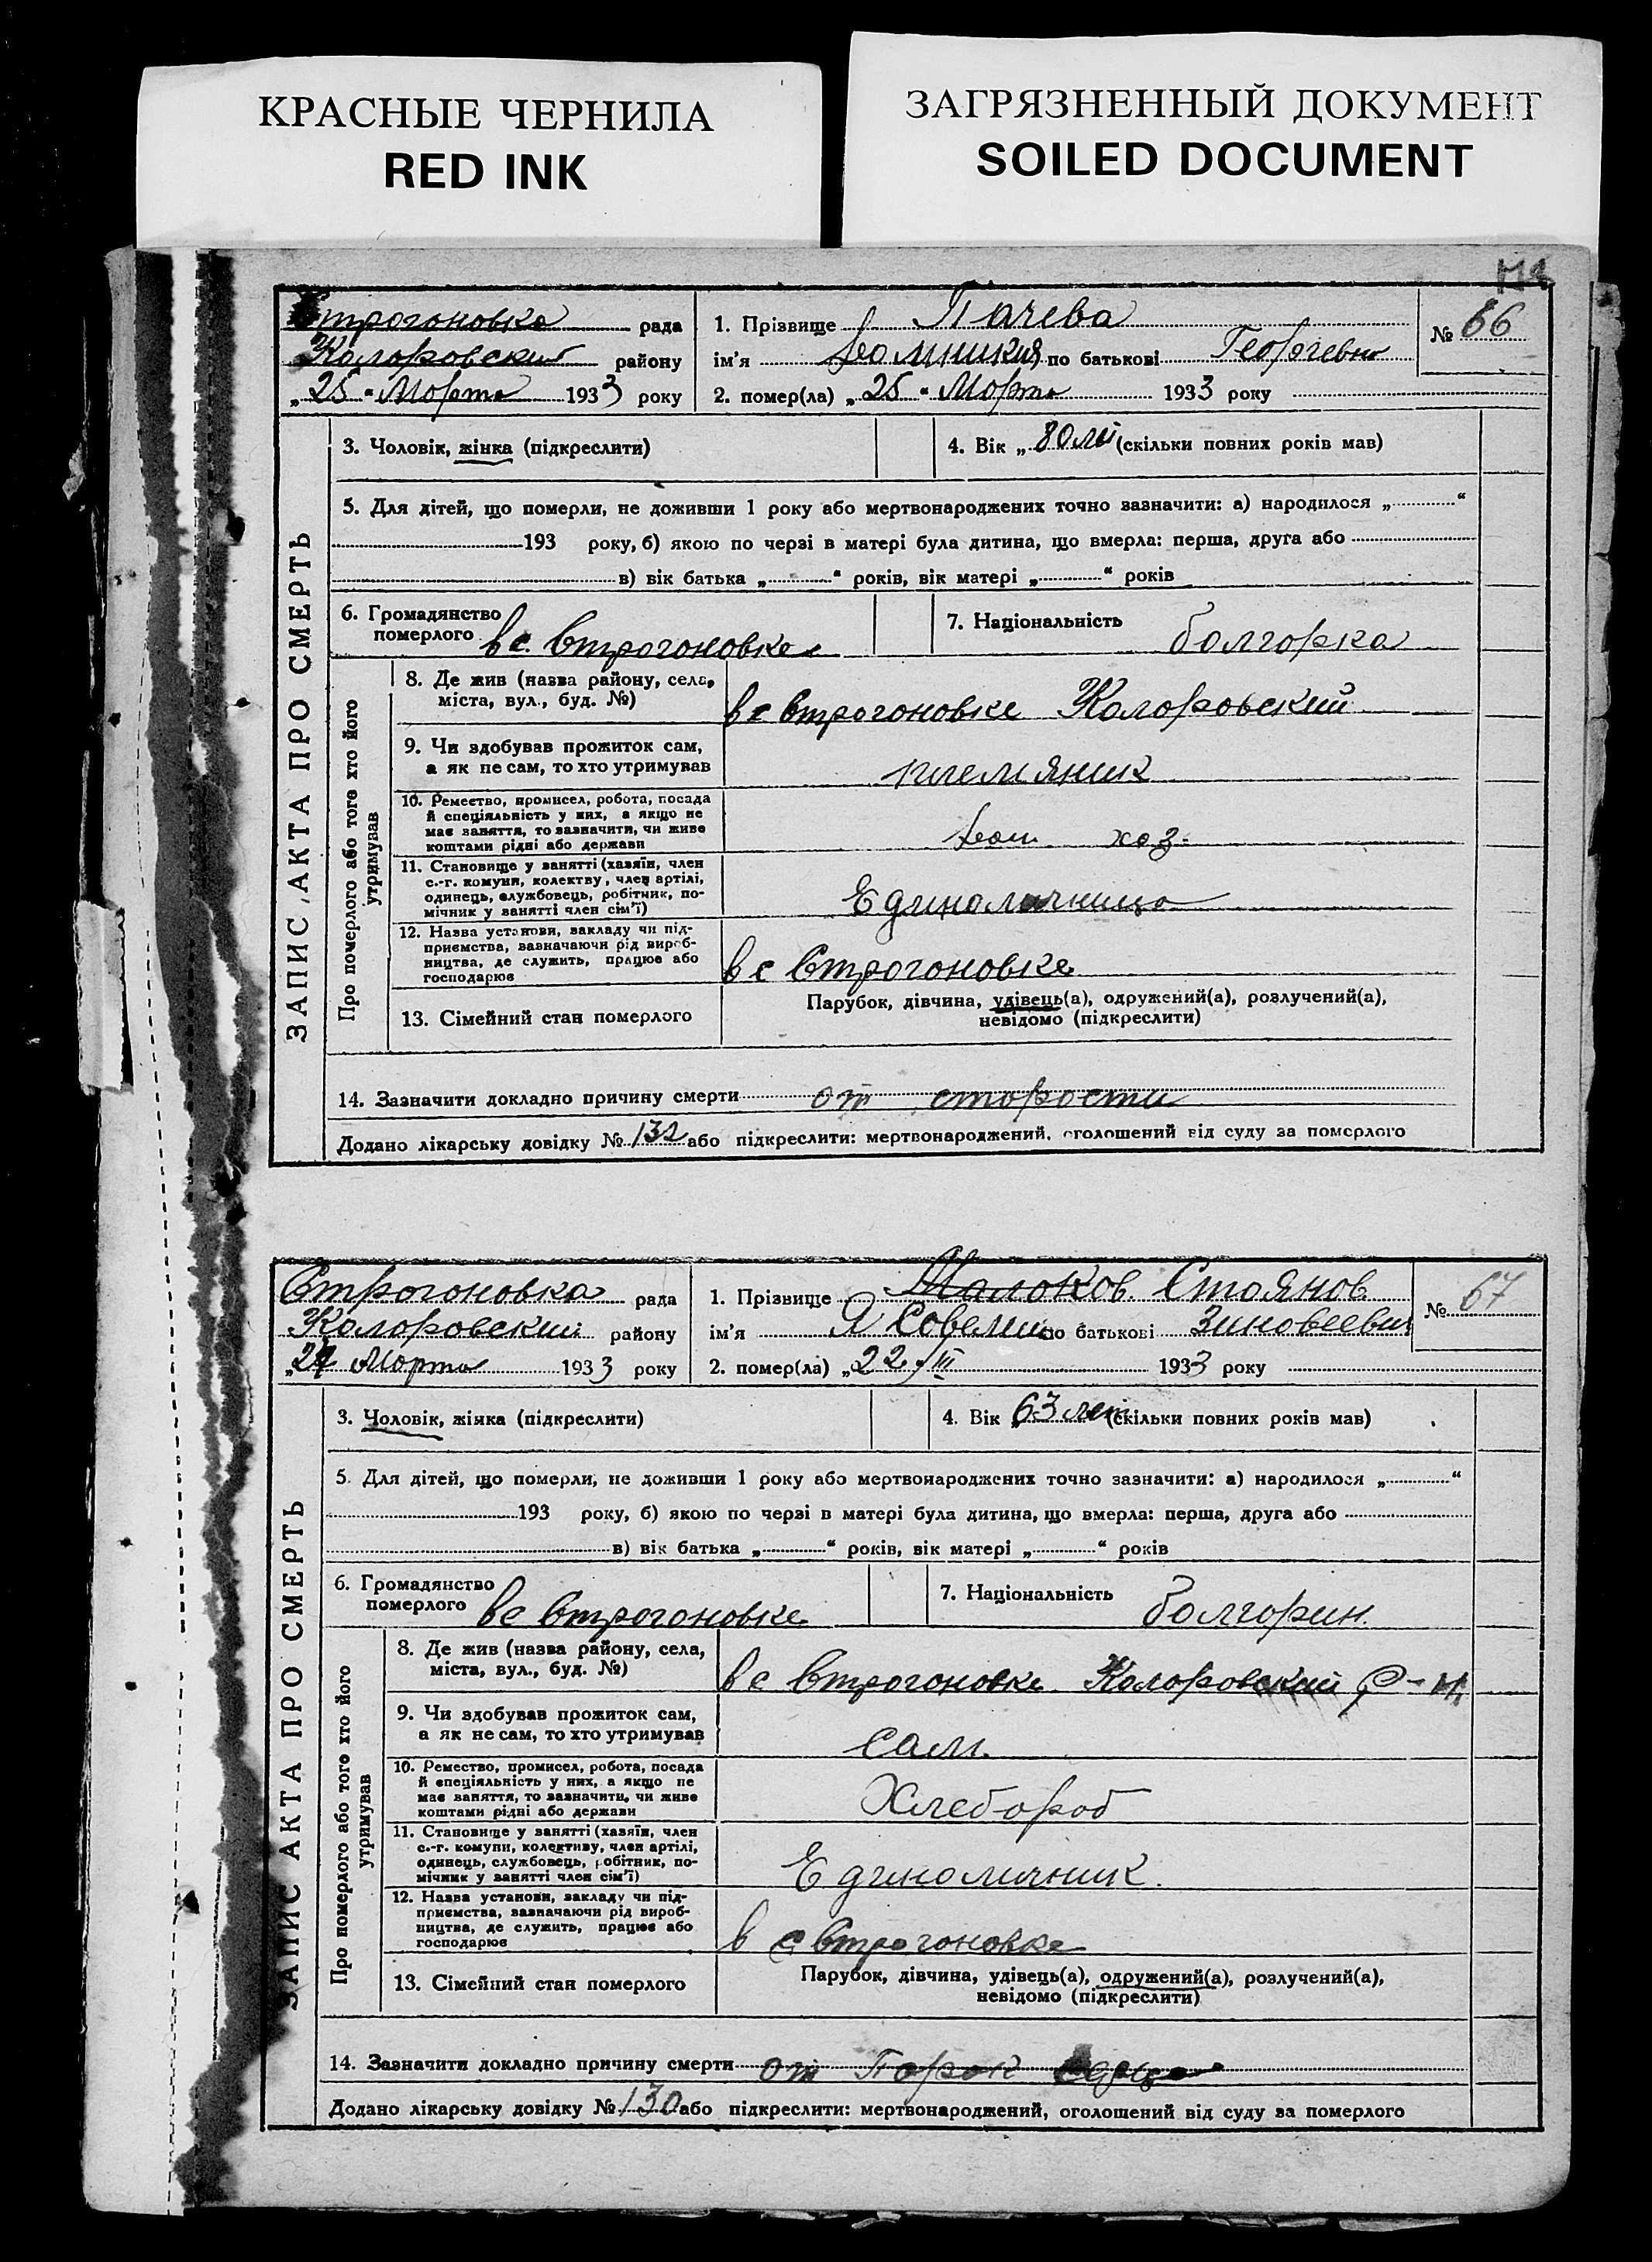 КРАСНЫЕ ЧЕРНИЛА
RED INK
ЗАГРЯЗНЕННЫЙ ДОКУМЕНТ
SOILED DOCUMENT
Строгоновка рада
Коларовский району
„25“ Марта 1933 року
1. Прізвище Пачева
ім’я Домникия по батькові Георгевно
2. помер(ла) „25“ Марта 1933 року
№ 66
ЗАПИС АКТА ПРО СМЕРТЬ
3. Чоловік, жінка (підкреслити)
4. Вік „80 лет (скільки повних років мав)
5. Для дітей, що померли, не доживши 1 року або мертвонароджених точно зазначити: а) народилося „ “
193 року, б) якою по черзі в матері була дитина, що вмерла: перша, друга або
в) вік батька „ “ років, вік матері „ “ років
6. Громадянство
померлого в с. Строгоновке
7. Національність болгорка
Про померлого або того хто його
утримував
8. Де жив (назва району, села,
міста, вул., буд. №)
в с Строгоновке Коларовский
9. Чи здобував прожиток сам,
а як не сам, то хто утримував
племяник
10. Ремество, промисел, робота, посада
й спеціяльність у них, а якщо не
має заняття, то зазначити, чи живе
коштами рідні або держави
дом хоз.
11. Становище у занятті (хазяїн, член
с.-г. комуни, колектву, член артілі,
одинець, службовець, робітник, по-
мічник у занятті член сім’ї)
Единоличница
12. Назва установи, закладу чи під-
приємства, зазначаючи рід вироб-
ництва, де служить, працює або
господарює
в с Строгоновке
13. Сімейний стан померлого
Парубок, дівчина, удівець(а), одружений(а), розлучений(а),
невідомо (підкреслити)
14. Зазначити докладно причину смерти от старости
Додано лікарську довідку № 132 або підкреслити: мертвонароджений, оголошений від суду за померлого
Строгоновка рада
Коларовский району
Марта 1933 року
1. Прізвище Малоков Стоянов
ім’я по батькові Зиновеевич
2. помер(ла) „22/III 1933 року
№ 67
ЗАПИС АКТА ПРО СМЕРТЬ
3. Чоловік, жінка (підкреслити)
4. Вік 63 лет (скільки повних років мав)
5. Для дітей, що померли, не доживши 1 року або мертвонароджених точно зазначити: а) народилося „ “
193 року, б) якою по черзі в матері була дитина, що вмерла: перша, друга або
в) вік батька „ “ років, вік матері „ “ років
6. Громадянство
померлого в с Строгоновке
7. Національність болгорин.
Про померлого або того хто його
утримував
8. Де жив (назва району, села,
міста, вул., буд. №)
в с Строгоновке Коларовский р-н.
9. Чи здобував прожиток сам,
а як не сам, то хто утримував
сам.
10. Ремество, промисел, робота, посада
й спеціяльність у них, а якщо не
має заняття, то зазначити, чи живе
коштами рідні або держави
Хлебороб
11. Становище у занятті (хазяїн, член
с.-г. комуни, колективу, член артілі,
одинець, службовець, робітник, по-
мічник у занятті член сім’ї)
Единоличник.
12. Назва установи, закладу чи під-
приємства, зазначаючи рід вироб-
ництва, де служить, працює або
господарює
в с Строгоновке
13. Сімейний стан померлого
Парубок, дівчина, удівець(а), одружений(а), розлучений(а),
невідомо (підкреслити)
14. Зазначити докладно причину смерти от Порок
Додано лікарську довідку № 130 або підкреслити: мертвонароджений, оголошений від суду за померлого